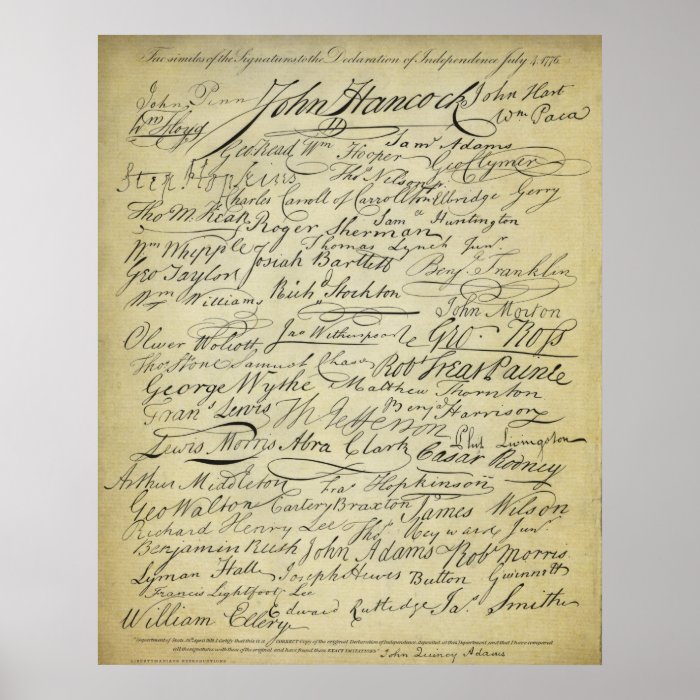 Fac similes of the Signatures to the Declaration of Independence July 4. 1776.
John Penn John Hancock John Hart
Wm Floyd Wm Paca
Geo Read Wm Hooper Saml Adams Geo Clymer
Step Hopkins Thos Nelson jr.
Charles Carroll of Carrollton Elbridge Gerry
Tho M. Kean Roger Sherman Saml Huntington
Wm Whipple Thomas Lynch Junr.
Geo Taylor Josiah Bartlett Benj. Franklin
Wm Williams Richd Stockton John Morton
Oliver Wolcott Jno Witherspoon Geo. Ross
Thos Stone Samuel Chase Robt Treat Paine
George Wythe Matthew Thornton
Frans. Lewis Th Jefferson Benj. Harrison
Lewis Morris Abra Clark Phil. Livingston
Cæsar Rodney
Arthur Middleton Fras. Hopkinson
Geo Walton Carter Braxton James Wilson
Richard Henry Lee Thos. Heyward Junr.
Benjamin Rush John Adams Robt Morris.
Lyman Hall Joseph Hewes Button Gwinnett
Francis Lightfoot Lee
William Ellery Edward Rutledge Jas. Smith
Department of State, 19th April 1819. I certify that this is a CORRECT Copy of the original Declaration of Independence deposited at this Department, and that I have compared
all the signatures with those of the original, and have found them EXACT IMITATIONS.
John Quincy Adams
LIBERTYMANIACS REPRODUCTIONS